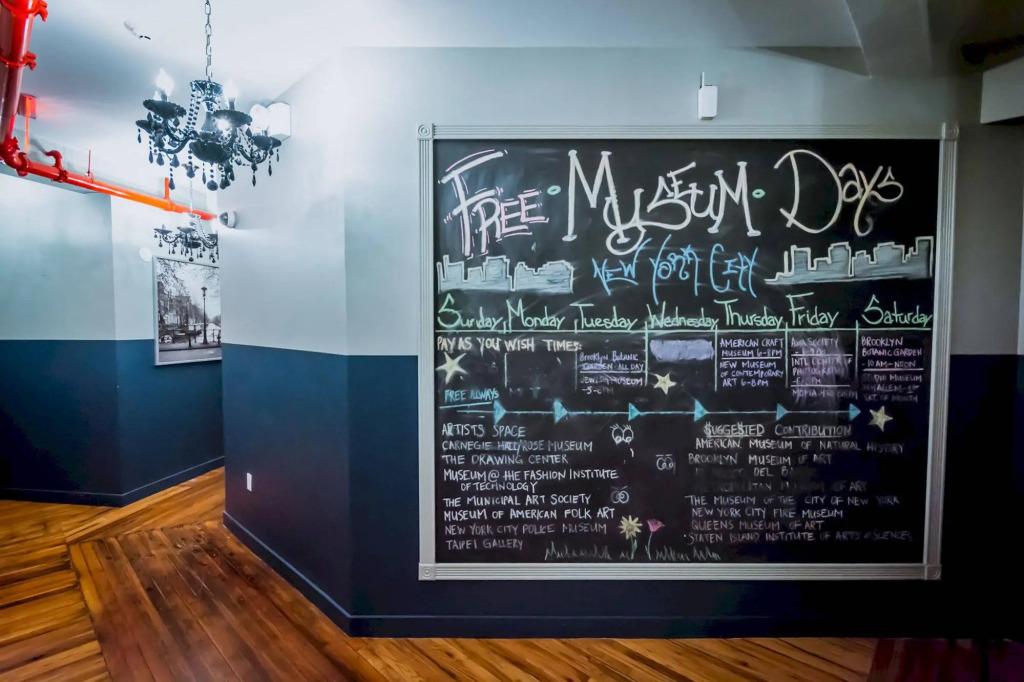 FREE · MUSEUM · DAYS
NEW YORK CITY
Sunday Monday Tuesday Wednesday Thursday Friday Saturday
PAY AS YOU WISH TIMES:
BROOKLYN BOTANIC
GARDEN ALL DAY
JEWISH MUSEUM
AMERICAN CRAFT
MUSEUM 6-8PM
NEW MUSEUM
OF CONTEMPORARY
ART 6-8PM
ASIA SOCIETY
INT'L CENTER OF
PHOTOGRAPHY
BROOKLYN
BOTANIC GARDEN
-10AM-NOON
STUDIO MUSEUM
OF MONTH
FREE ALWAYS
ARTISTS SPACE
CARNEGIE HALL/ROSE MUSEUM
THE DRAWING CENTER
MUSEUM @ THE FASHION INSTITUTE
OF TECHNOLOGY
THE MUNICIPAL ART SOCIETY
MUSEUM OF AMERICAN FOLK ART
NEW YORK CITY POLICE MUSEUM
TAIPEI GALLERY
SUGGESTED CONTRIBUTION
AMERICAN MUSEUM OF NATURAL HISTORY
BROOKLYN MUSEUM OF ART
DEL
MUSEUM OF ART
THE MUSEUM OF THE CITY OF NEW YORK
NEW YORK CITY FIRE MUSEUM
QUEENS MUSEUM OF ART
·STATEN ISLAND INSTITUTE OF ARTS & SCIENCES